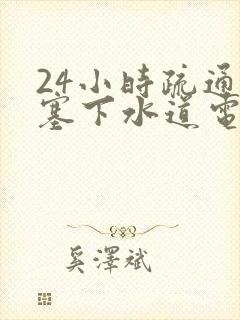 24小時疏通
塞下水道電
奚澤斌